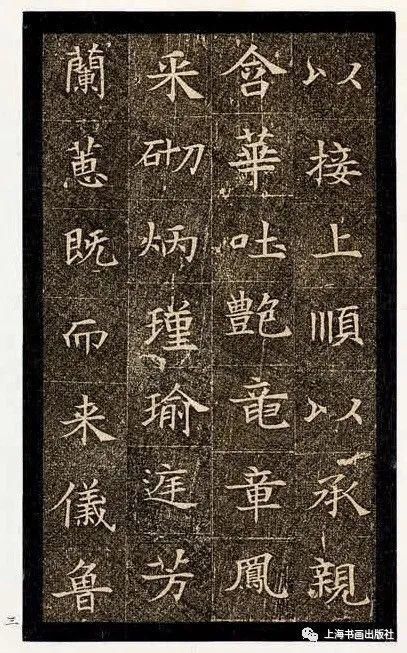 以接上順以承親
含華吐艷竜章鳳
采砌炳瑾瑜庭芳
蘭蕙既而来儀魯
三
上海书画出版社